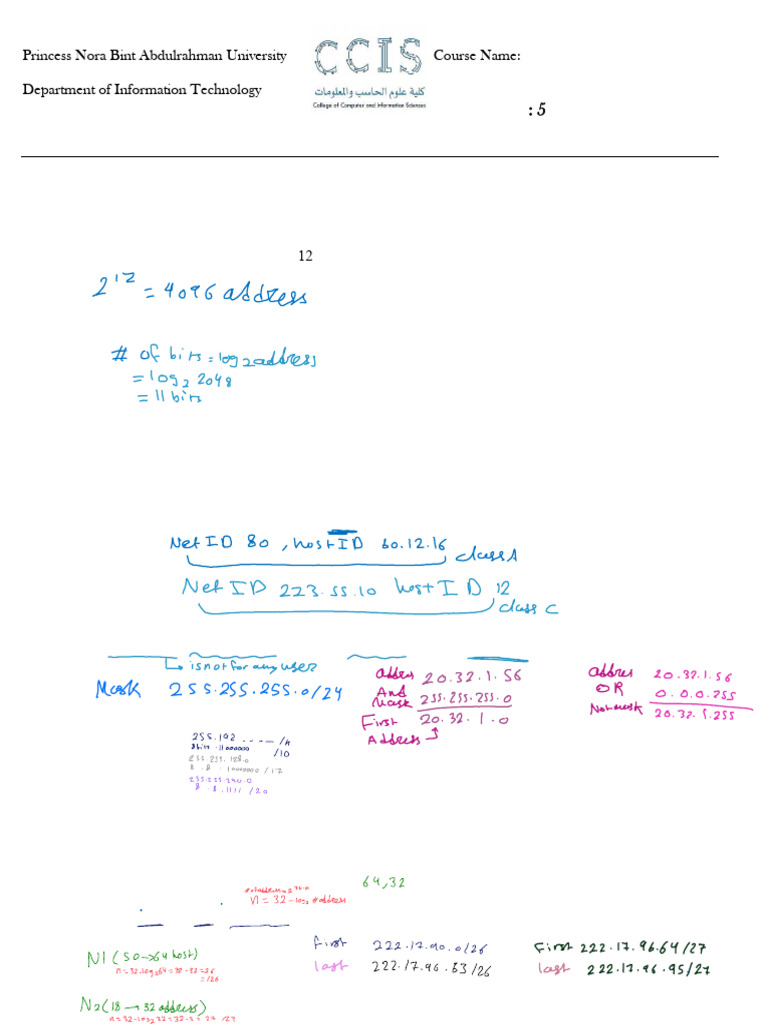 Princess Nora Bint Abdulrahman University
Department of Information Technology
CCIS
كلية علوم الحاسب والمعلومات
College of Computer and Information Sciences
Course Name:
: 5
12
2^12 = 4096 address
# of bits = log2 address
= log2 2048
= 11 bits
Net ID 80 , host ID 60.12.16
class A
Net ID 223.55.10 host ID 12
class C
is not for any user
Mask 255.255.255.0/24
addres 20.32.1.56
And
Mask 255.255.255.0
First 20.32.1.0
Address
addres 20.32.1.56
OR 0.0.0.255
Not mask 20.32.1.255
255.192
8bin . 11000000 /10
255.255.128.0
8 . 8 . 10000000 / 17
255.255.240.0
8 . 8 . 1111 / 20
64,32
n = 32 - log2 # address
N1 (50 → 64 host)
= /26
N2 (18 → 32 address)
First 222.17.90.0/26
last 222.17.96.53/26
First 222.17.96.64/27
last 222.17.96.95/27